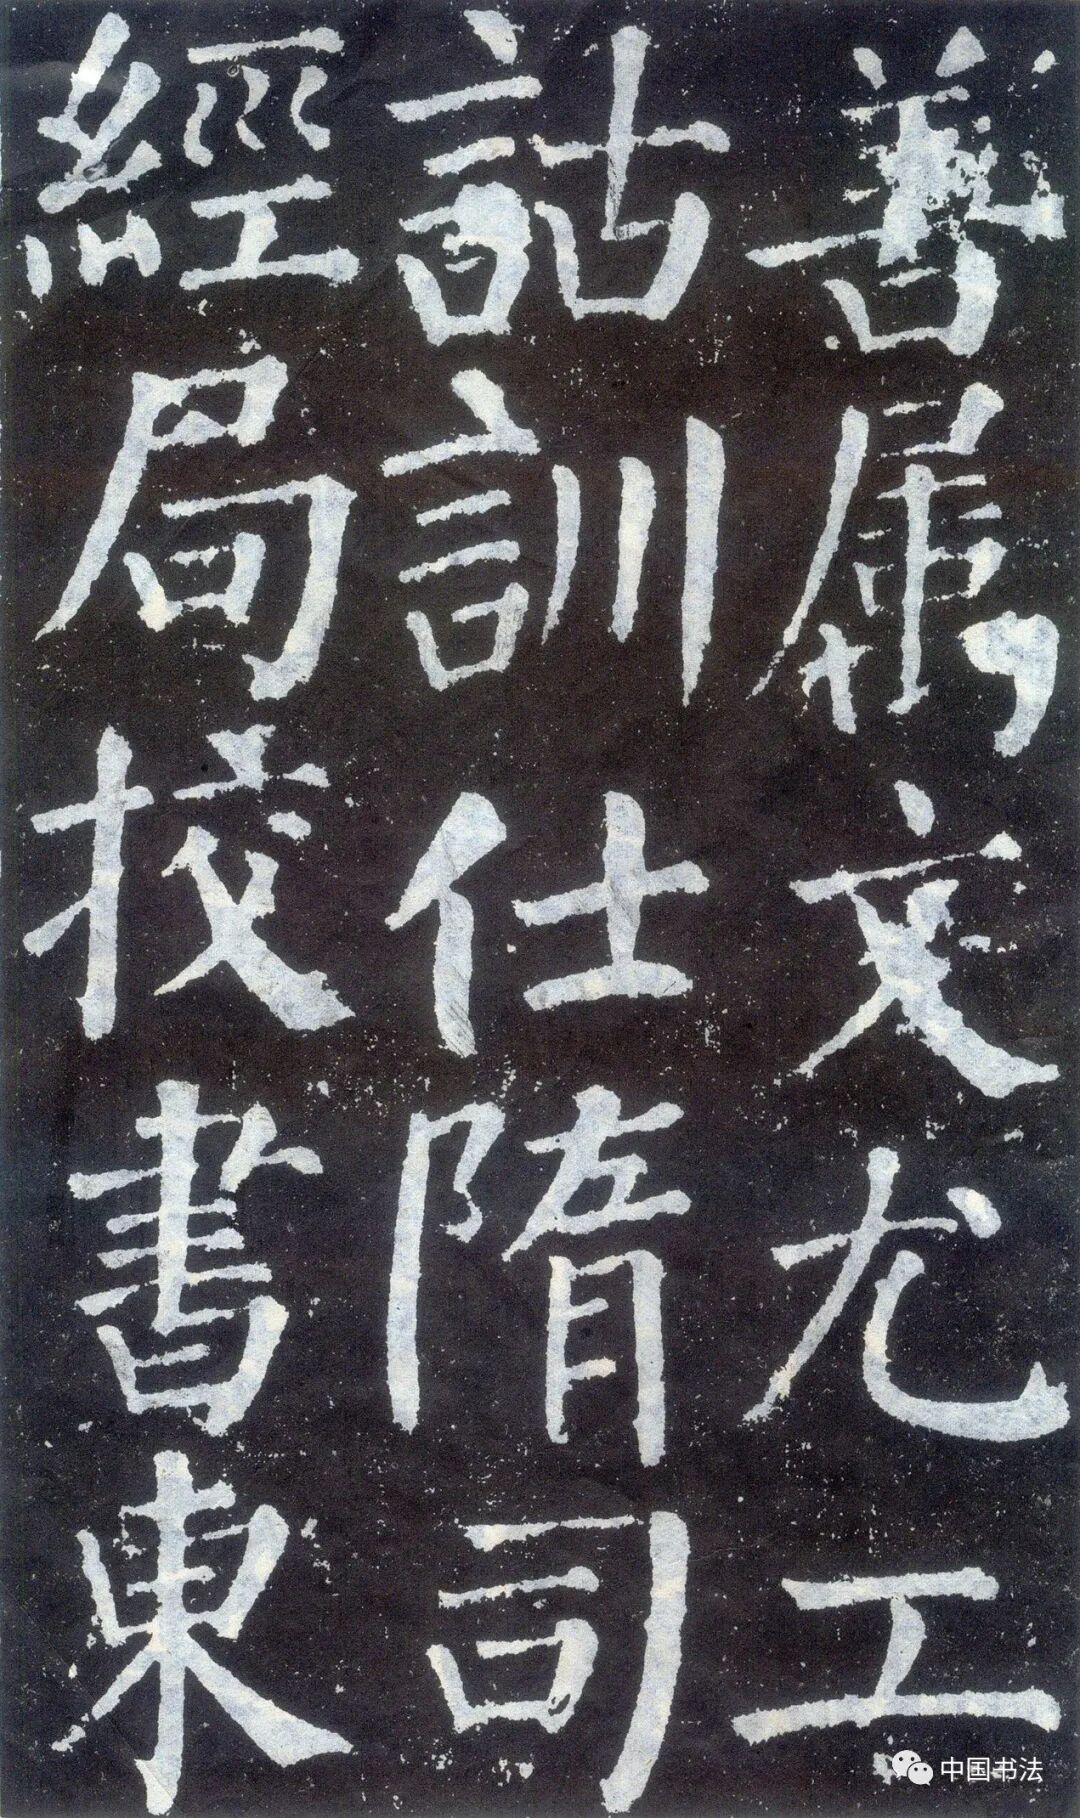 善属文尤工
詁訓仕隋司
經局挍書東
中国书法